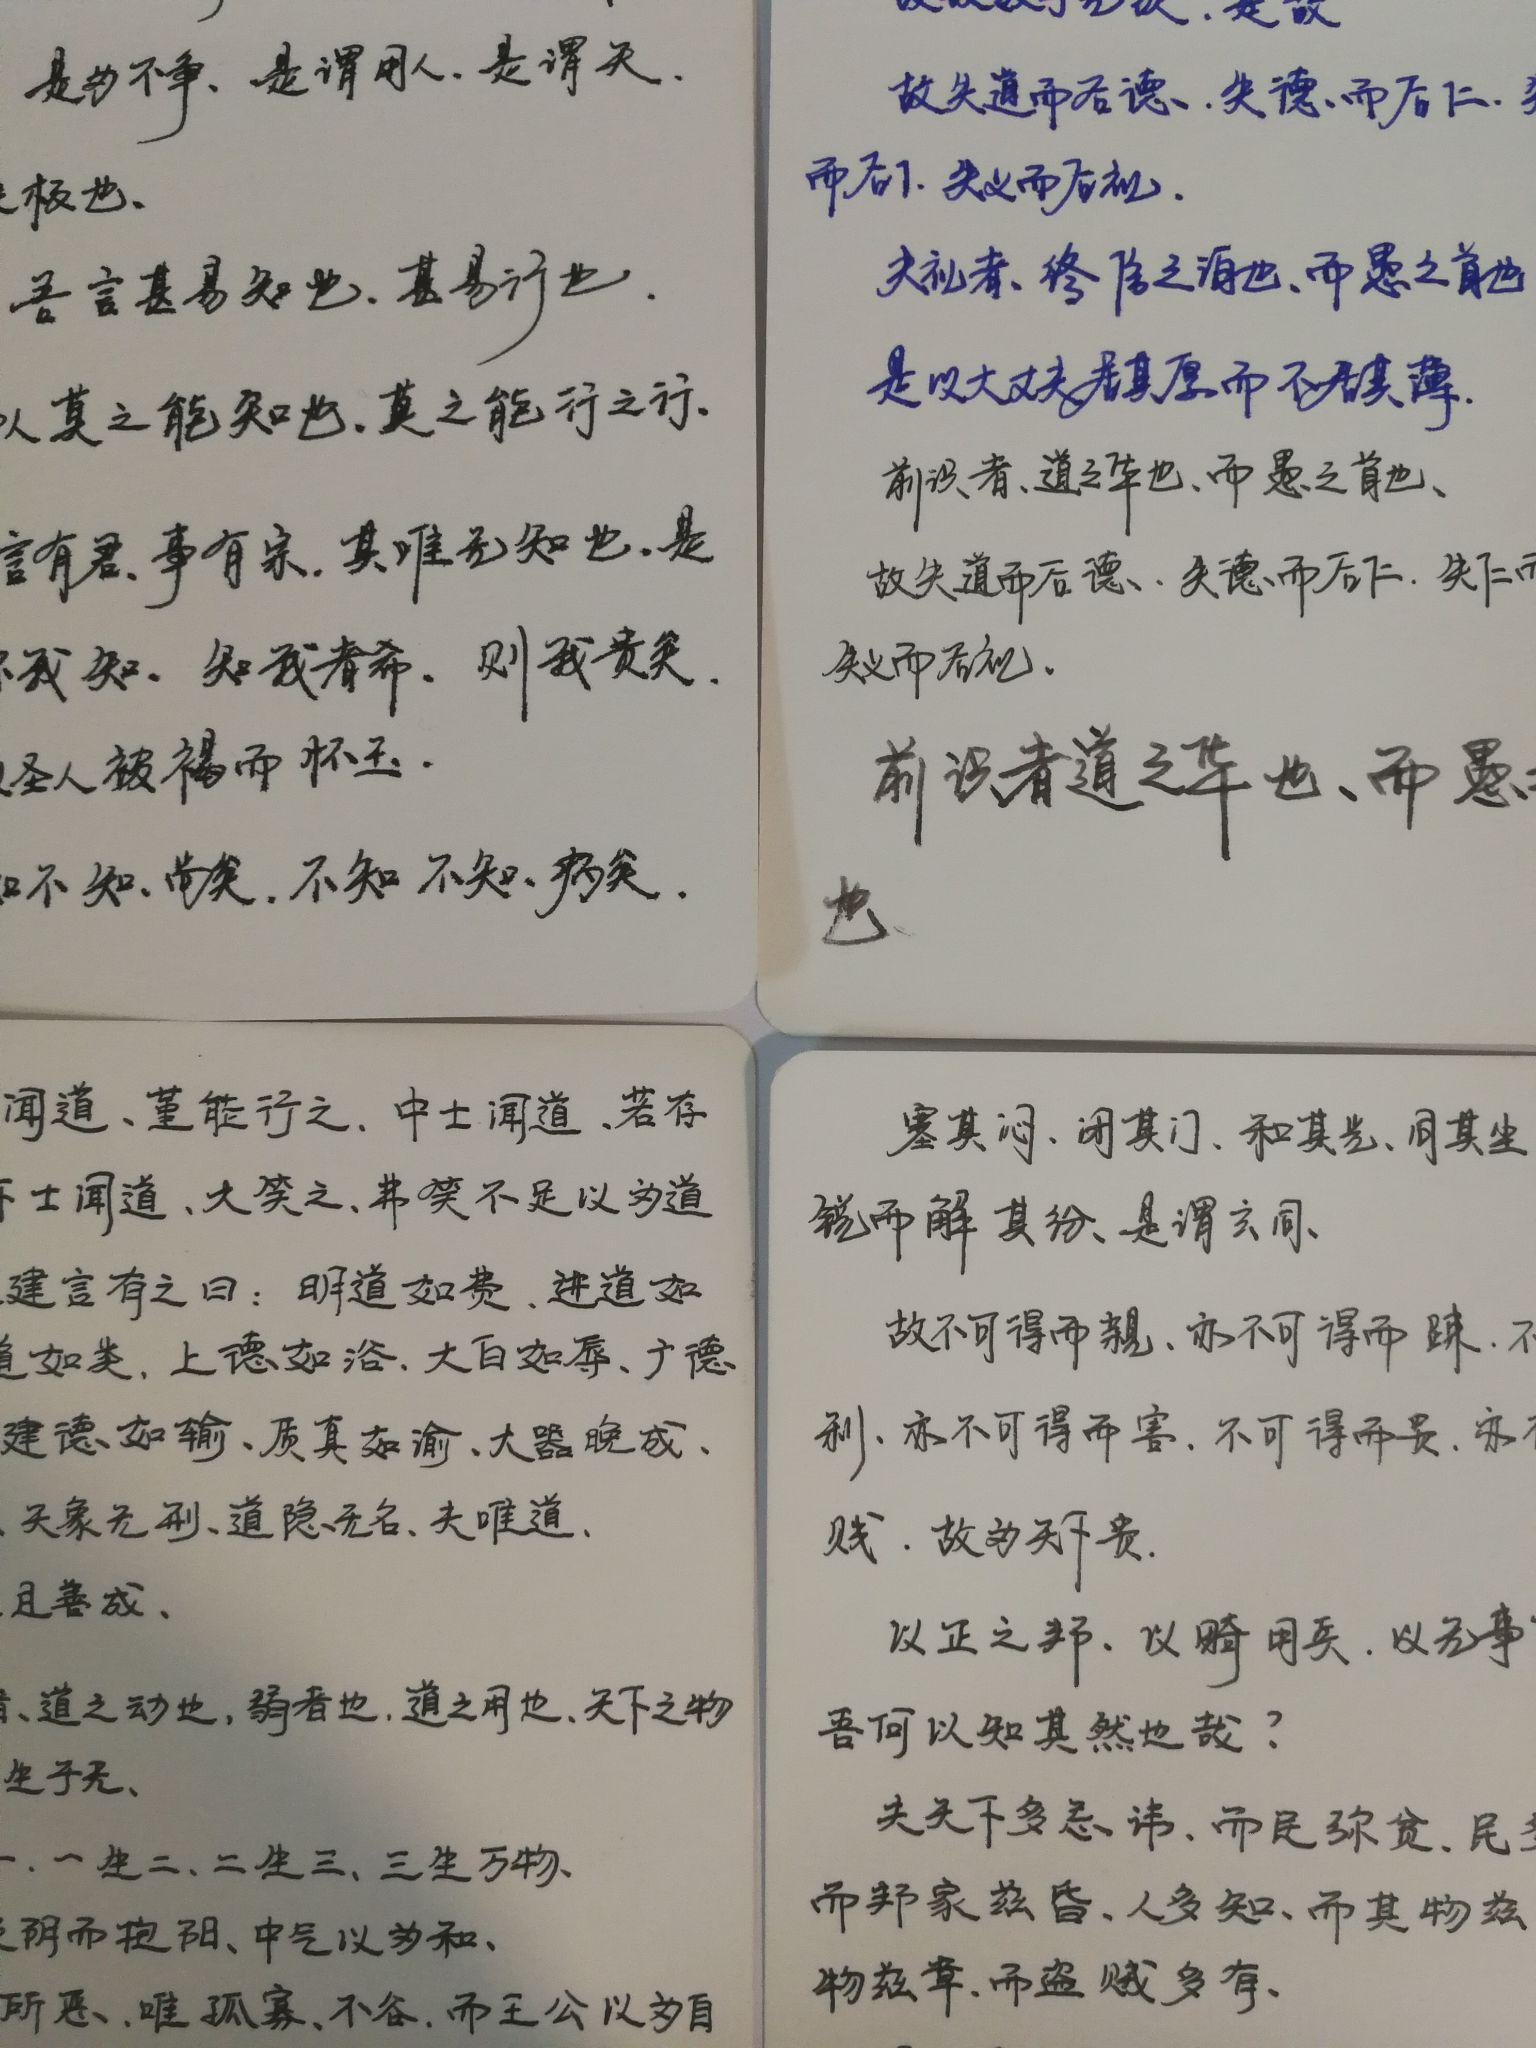 是为不争、是谓用人.是谓天.
极也、
吾言甚易知也、甚易行也.
人莫之能知也.莫之能行之行.
言有君、事有宗.其唯无知也.是
我知.知我者希.则我贵矣.
圣人被褐而怀玉.
不知、尚矣.不知不知、病矣.
故失道而后德、.失德、而后仁.
而后.失义而后礼.
夫礼者、终之泊也、而愚之首也
是以大丈夫居其厚而不居其薄.
前识者、道之华也、而愚之首也、
故失道而后德、.失德而后仁.失仁而
失义而后礼.
前识者道之华也、而愚
也、
闻道、堇能行之.中士闻道、若存
下士闻道、大笑之、弗笑不足以为道
建言有之曰：明道如费.进道如
道如类.上德如浴.大白如辱、广德
建德如输、质真如渝、大器晚成、
天象无刑、道隐无名、夫唯道、
且善成、
、道之动也,弱者也.道之用也、天下之物
生于无、
一.一生二、二生三、三生万物、
阴而抱阳、中气以为和、
所恶、.唯孤寡、不谷.而王公以为自
塞其闷、闭其门、和其光、同其尘
锐而解其纷、是谓玄同、
故不可得而親、亦不可得而疎.不
利、亦不可得而害.不可得而贵.亦不
贱.故为天下贵.
以正之邦、以畸用兵.以无事
吾何以知其然也哉?
夫天下多忌讳、而民弥贫.民
而邦家兹昏、人多知、而其物兹
物兹章.而盗贼多有、